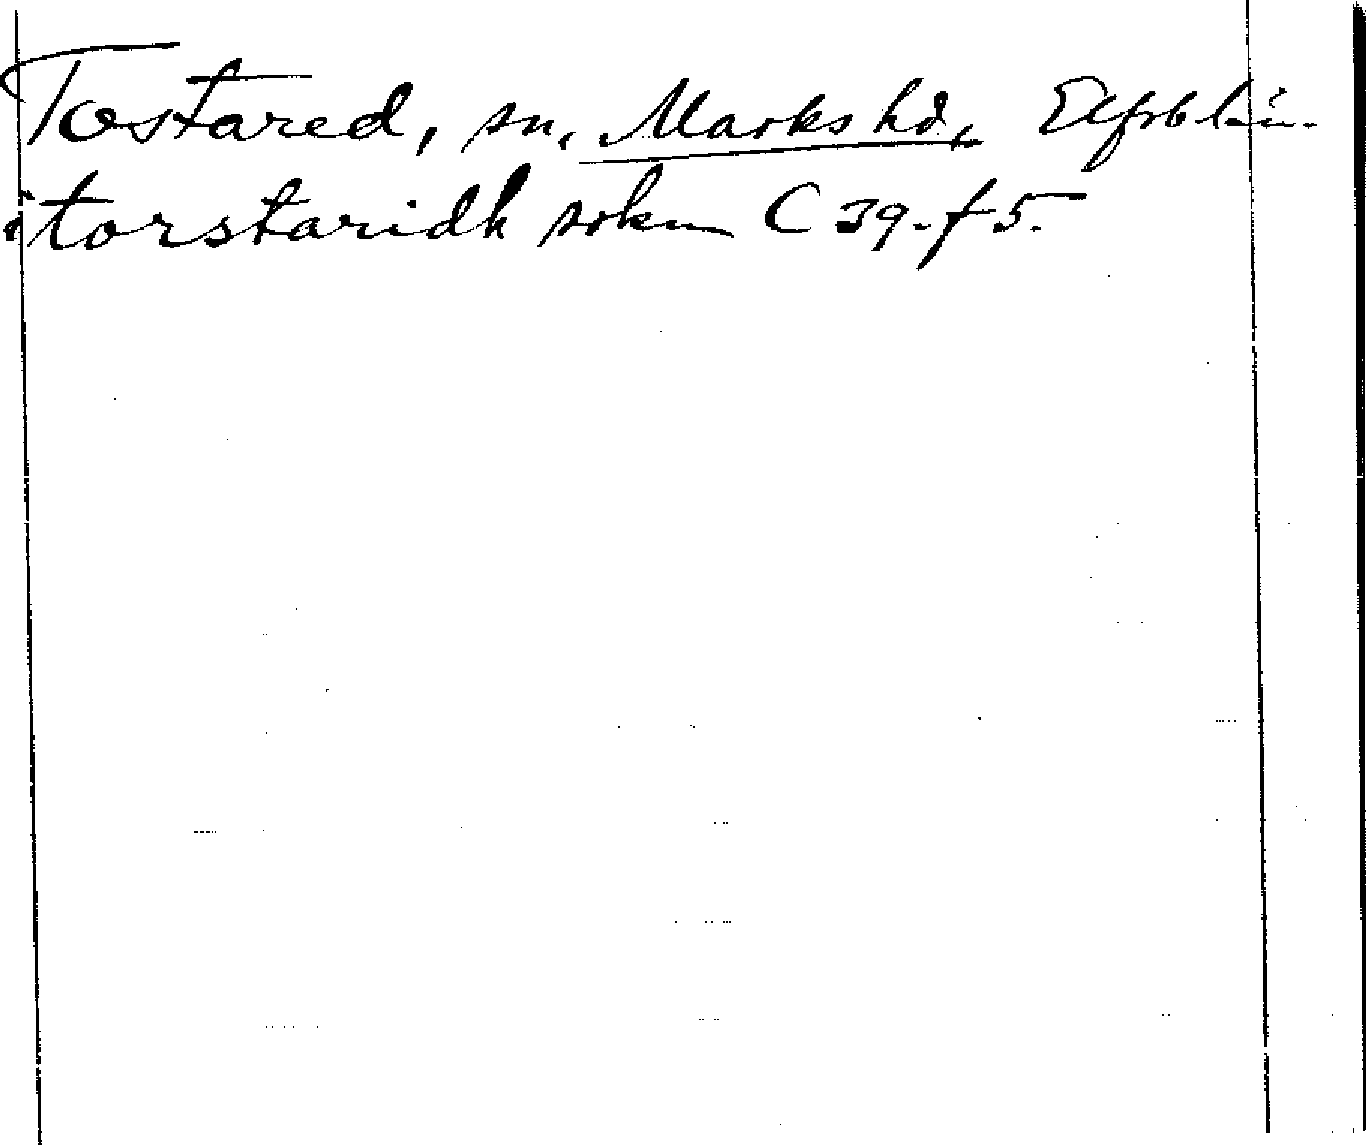 Tostared, sn, Marks hd, Elfsb län.
i torstaridh sokn C 39. f 5.